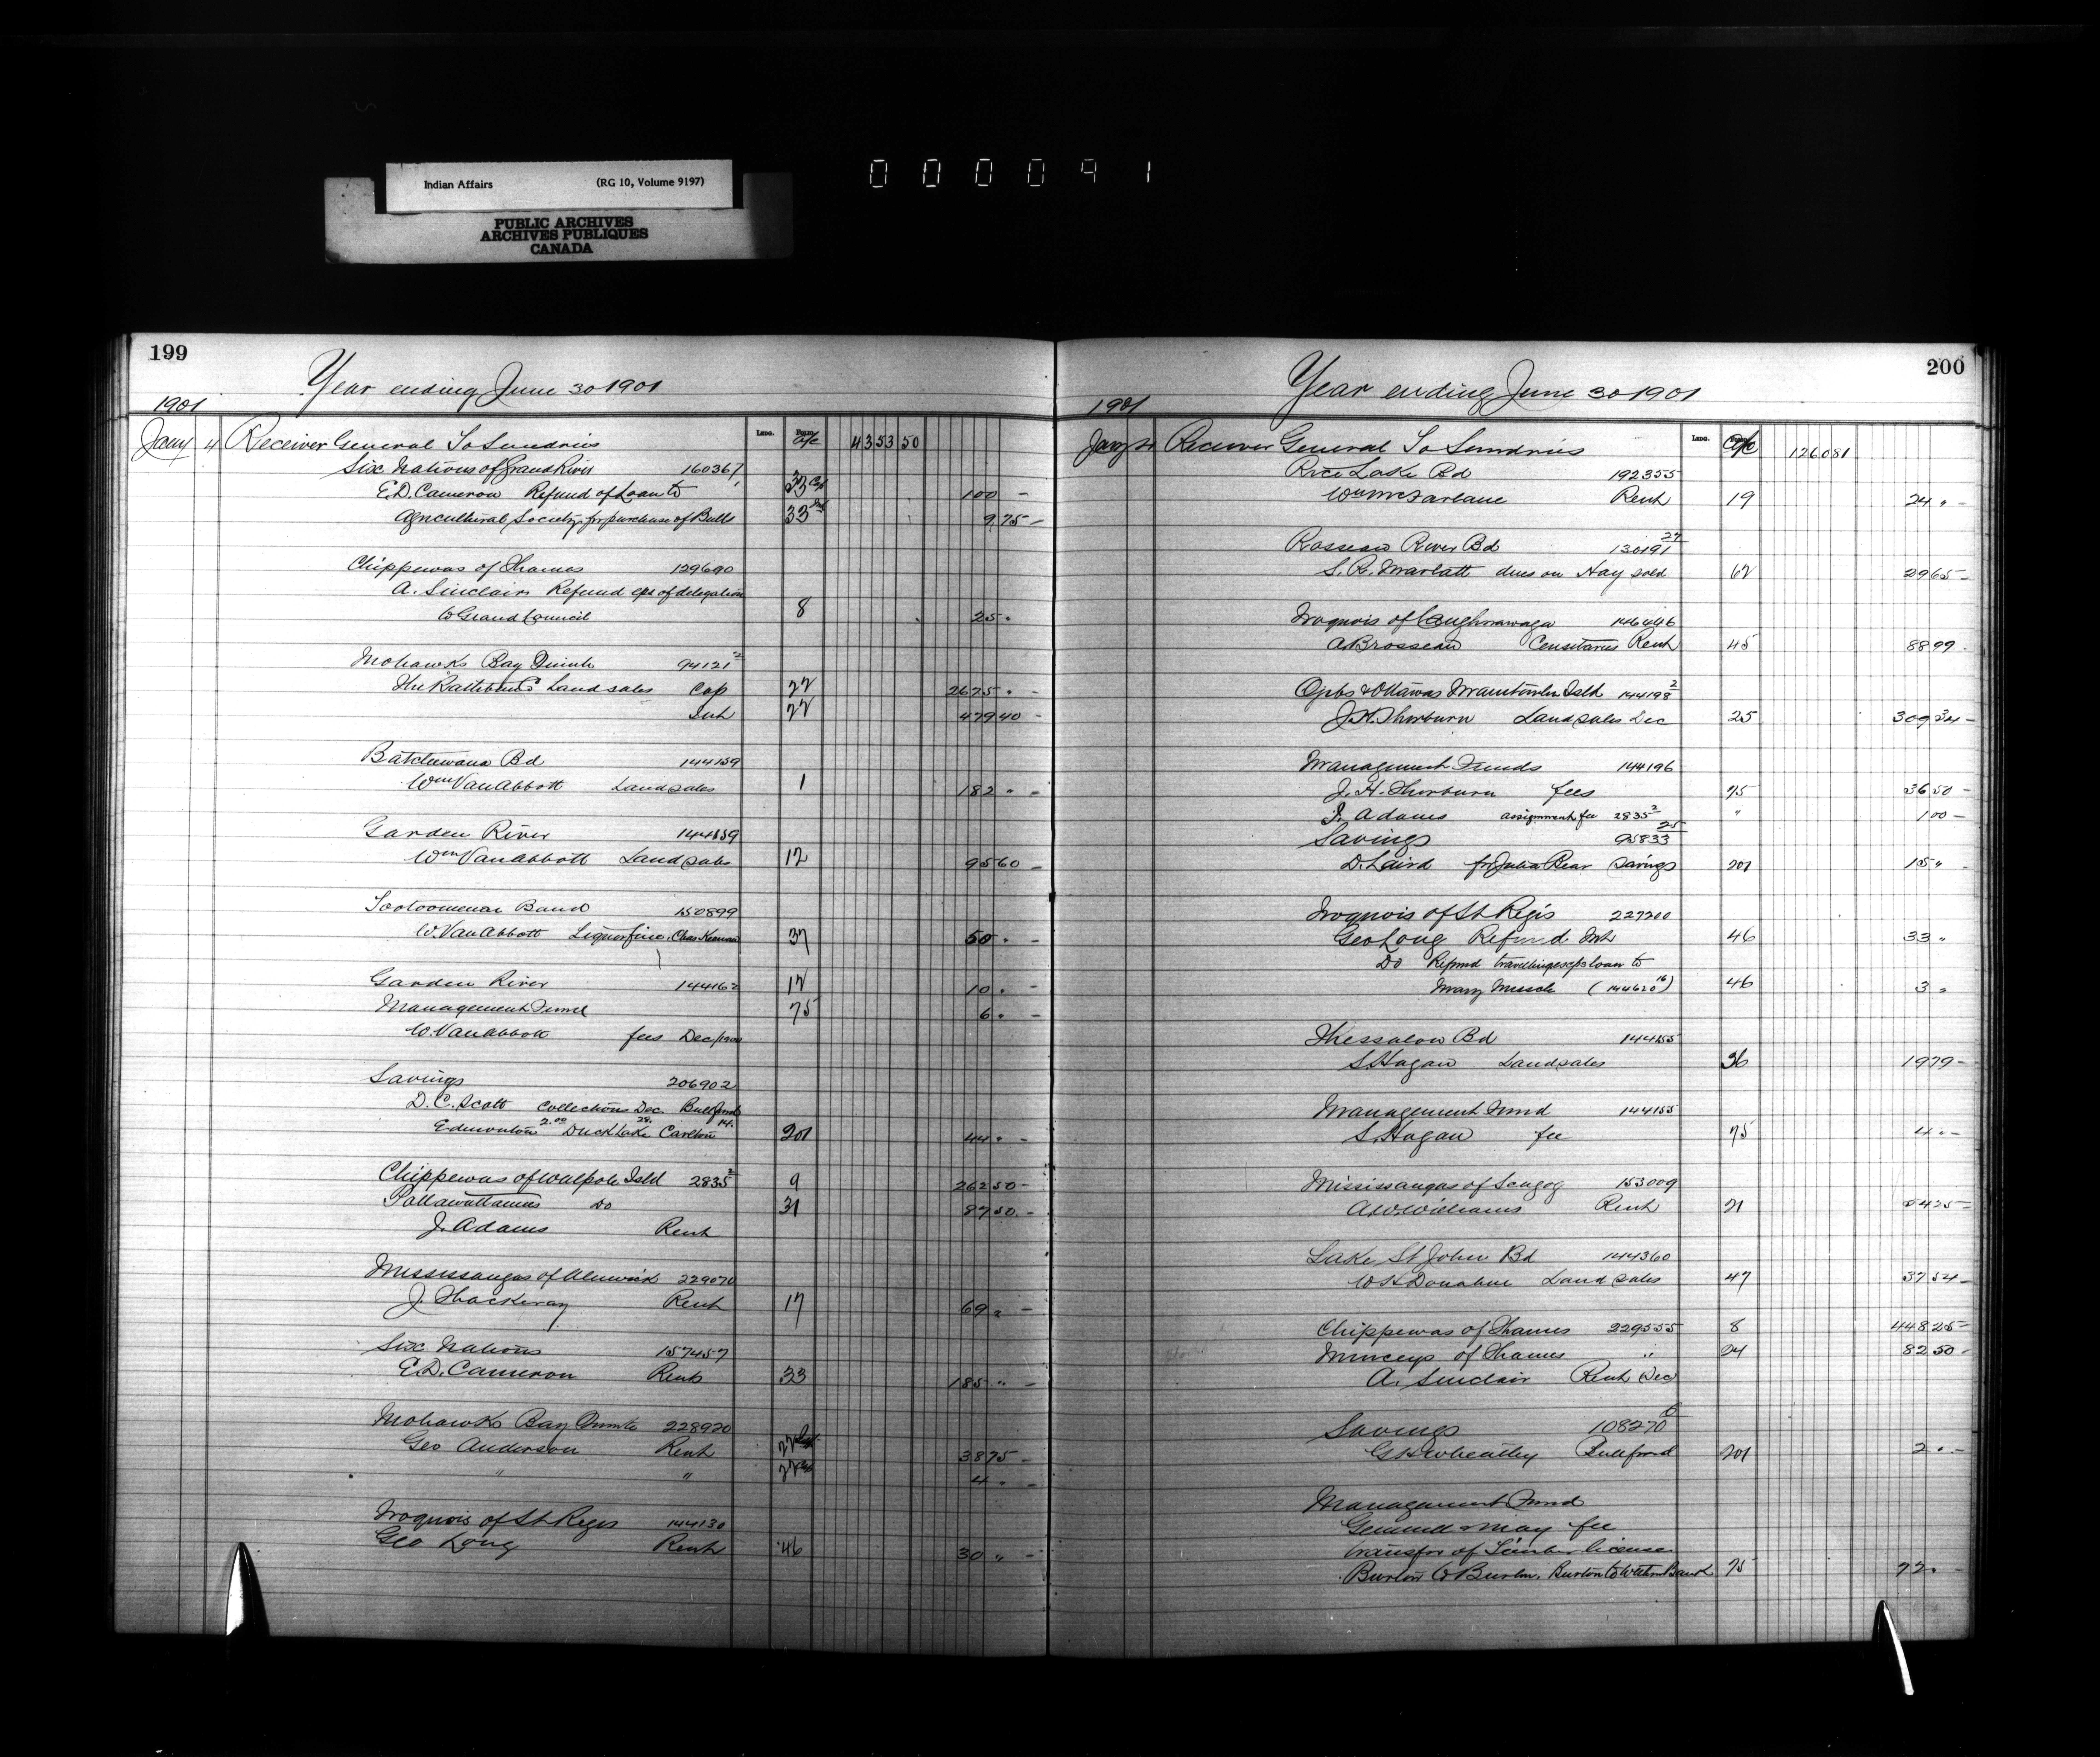 Indian Affairs (RG 10, Volume 9197)
PUBLIC ARCHIVES
ARCHIVES PUBLIQUES
CANADA
000091
199
Year ending June 30 1901
1901
Jany 4 Receiver General To Sundries Lino. a/c 4353 50
Six Nations of Grand River 160367
E.D. Cameron Refund of Loan to 33 Cap 100 -
Agricultural Society for purchase of Bulls 33 9.75 -
Chippewas of Thames 129690
A. Sinclair Refund exps of delegation
to Grand Council 8 25 .
Mohawks Bay Quinte 94121 2
The Rathbun Co Land sales Cap 22 2625 . -
Int 22 479 40 -
Batchewana Bd 144159
Wm Van Abbott Land sales 1 182 " -
Garden River 144159
Wm Van Abbott Land sales 12 95 60 -
Tootoomenai Band 150899
W. Van Abbott Liquor fine, Chas 37 50 . -
Garden River 144162 12 10 . -
Management Fund 75 6 . -
W. Van Abbott fees Dec/1900
Savings 206902
D.C. Scott Collections Dec. Bull fund
Edmonton 2.00 Duck Lake 28. Carlton 14. 201 44 . -
Chippewas of Walpole Isld 2835 2 9 262 50 -
Pottawattamies Do 31 87 50 -
J. Adams Rent
Mississaugas of Alnwick 229070
J. Thackeray Rent 17 69 " -
Six Nations 157457
E.D. Cameron Rents 33 185 " -
Mohawks Bay Quinte 228920
Geo Anderson Rent 22 38 75 -
" " 22 4 . -
Iroquois of St Regis 144130
Geo Long Rent 46 30 " -
200
Year ending June 30 1901
1901
Jany 4 Receiver General To Sundries Lino. a/c 1260 81
Rice Lake Bd 192355
Wm McFarlane Rent 19 24 " -
Rosseau River Bd 130191 27
S.R. Marlatt dues on Hay sold 62 29 65 -
Iroquois of Caughnawaga 146446
A Brosseau Censitaires Rent 45 88 99 -
Ojbs & Ottawas Manitoulin Isld 144198 2
J.H. Thorburn Land sales Dec 25 309 34 -
Management Funds 144196
J.H. Thorburn fees 75 36 50 -
J. Adams assignment fee 2835 2 " 1 00 -
Savings 95833 25
D. Laird for Julia Bear Savings 201 15 " -
Iroquois of St Regis 227200
Geo Long Refund Int 46 33 "
Do Refund travelling exps loan to
Mary (144620 16) 46 3 "
Thessalon Bd 144155
S. Hagan Land sales 36 19 79 -
Management Fund 144155
S. Hagan fee 75 4 " -
Mississaugas of Scugog 153009
A.W. Williams Rent 21 54 25 -
Lake St John Bd 144360
W.H. Donahue Land sales 47 37 54 -
Chippewas of Thames 229555 8 448 25 -
Munceys of Thames " 24 82 50 -
A. Sinclair Rent Dec
Savings 108270 6
G.H. Wheatley Bull fund 201 2 . -
Management Fund
Gemmell & May fee
transfer of Timber license
Burton to Burton, Burton to Western Bank 75 72 . -